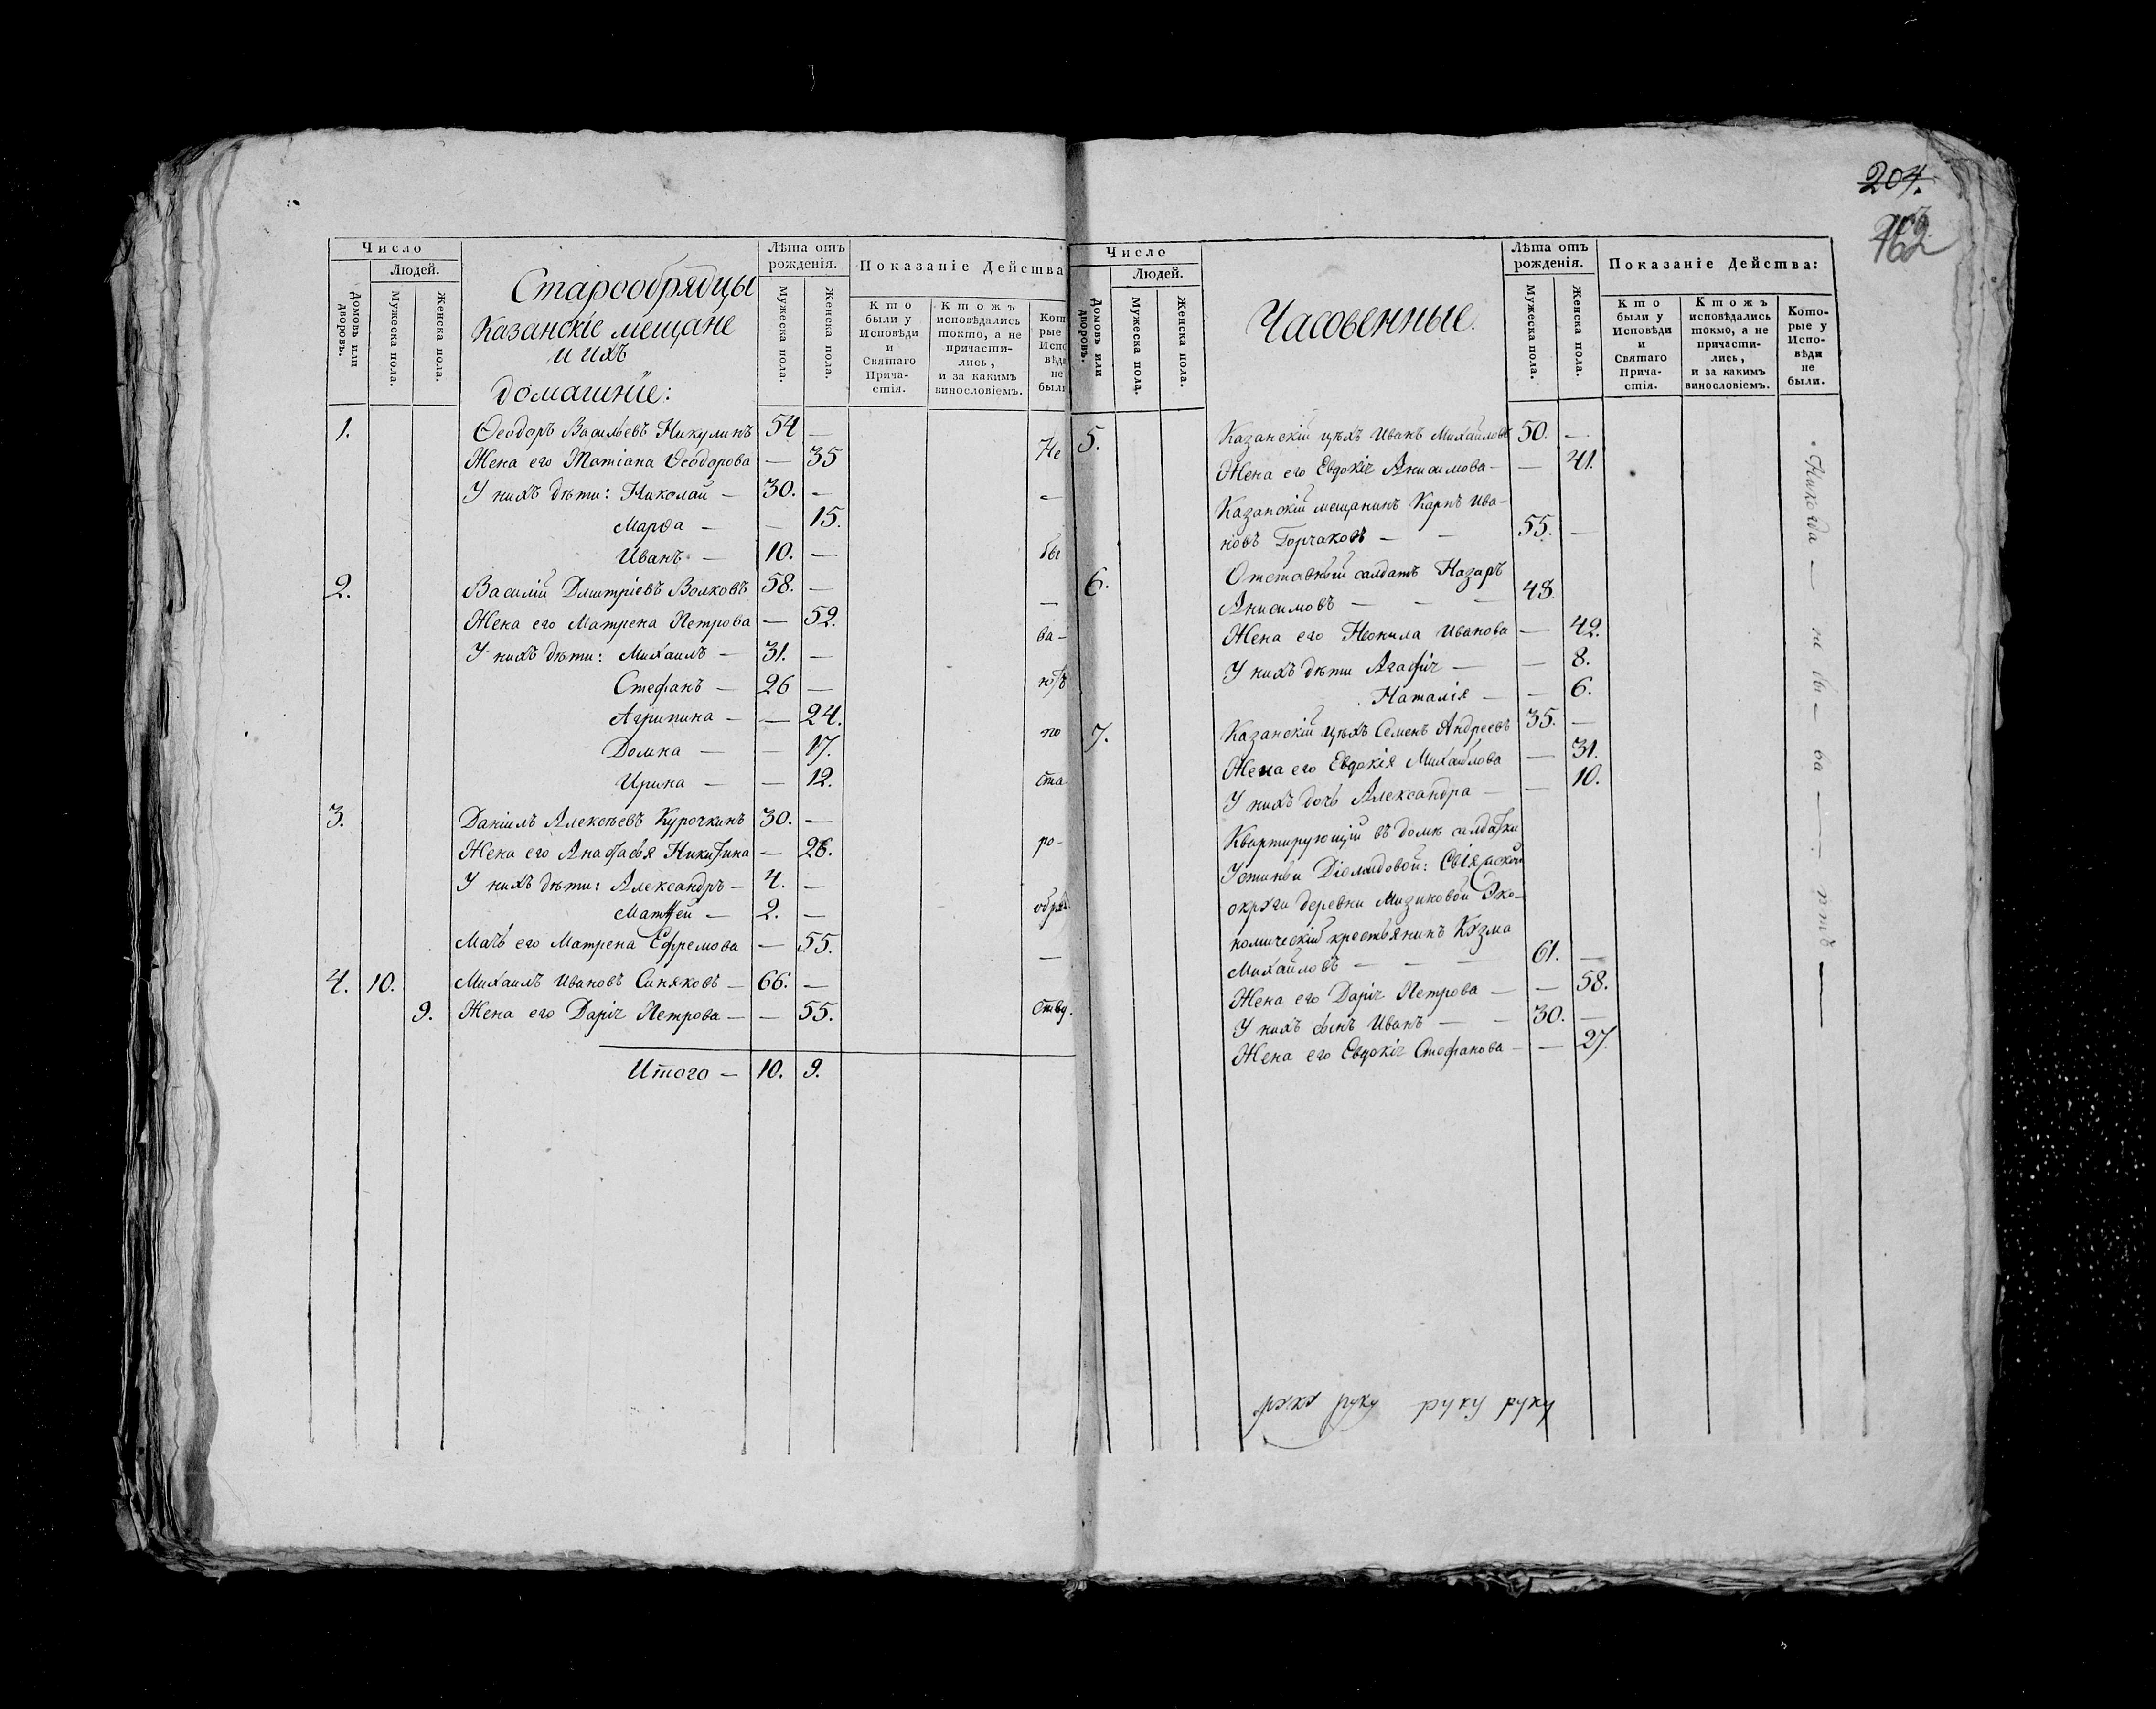 Число
Людей.
Домовъ или дворовъ.
Мужеска пола.
Женска пола.
Старообрядцы
Казанскіе мещане
и ихъ
домашніе:
Лѣта отъ
рожденія.
Мужеска пола.
Женска пола.
Показаніе Дейсtва
Кто
были у
Исповѣди
и
Святаго
Прича-
стія.
Ктожъ
исповѣдались
токто, а не
причасти-
лись,
и за какимъ
винословіемъ.
Кот
рые
Испо
вѣд
не
были
1. Ѳеодоръ Васильевъ Никулинъ 54 —
Жена его Татіана Ѳеодорова — 35 Не
У нихъ дѣти: Николай — 30. — —
Марѳа — — 15.
Иванъ — 10. — бы
2. Василій Дмитріевъ Волковъ 58. — —
Жена его Матрена Петрова — 52. ва-
У нихъ дѣти: Михаилъ — 31. —
Стефанъ — 26 — ютъ
Агрипина — — 24.
Домна — — 17. по
Ирина — — 12. ста
3. Даніилъ Алексѣевъ Курочкинъ 30. —
Жена его Анастасья Никитина — 28. ро-
У нихъ дѣти: Александръ — 4. —
Матѳей — 2. — обряд.
Мать его Матрена Ефремова — 55. —
4. 10. Михаилъ Ивановъ Синяковъ — 66. —
9. Жена его Даріѧ Петрова — — 55. ству.
Итого — 10. 9.
204.
162
Число
Людей.
Домовъ или дворовъ.
Мужеска пола.
Женска пола.
Часовенные.
Лѣта отъ
рожденія.
Мужеска пола.
Женска пола.
Показаніе Дейсtва:
Кто
были у
Исповѣди
и
Святаго
Прича-
стія.
Ктожъ
исповѣдались
токмо, а не
причасти-
лись,
и за какимъ
винословіемъ.
Кото-
рые у
Испо-
вѣди
не
были.
5. Казанскій цѣхъ Иванъ Михайловъ 50. —
Жена его Евдокіѧ Анисимова — — 41.
Казанскій мещанинъ Карпъ Ива-
новъ Горчаковъ — — 55. —
6. Отставный салдатъ Назаръ
Анисимовъ — — — 48.
Жена его Неонила Иванова — 42.
У нихъ дѣти Агафіѧ — — 8.
Наталія — — 6.
7. Казанскій цѣхъ Семенъ Андреевъ 35. —
Жена его Евдокія Михайлова — 31.
У нихъ дочь Александра — — 10.
Квартирующій въ домѣ салдатки
Устиньи Діомидовой: Свіяжской
округи деревни Мизиновой Эко-
номическій крестьянинъ Кузма
Михайловъ — — — 61. —
Жена его Даріѧ Петрова — — 58.
У нихъ сынъ Иванъ — — 30. —
Жена его Евдокіѧ Стефанова — — 27.
Никогда — не бы — ва — — ютъ —
руку руку руку руку